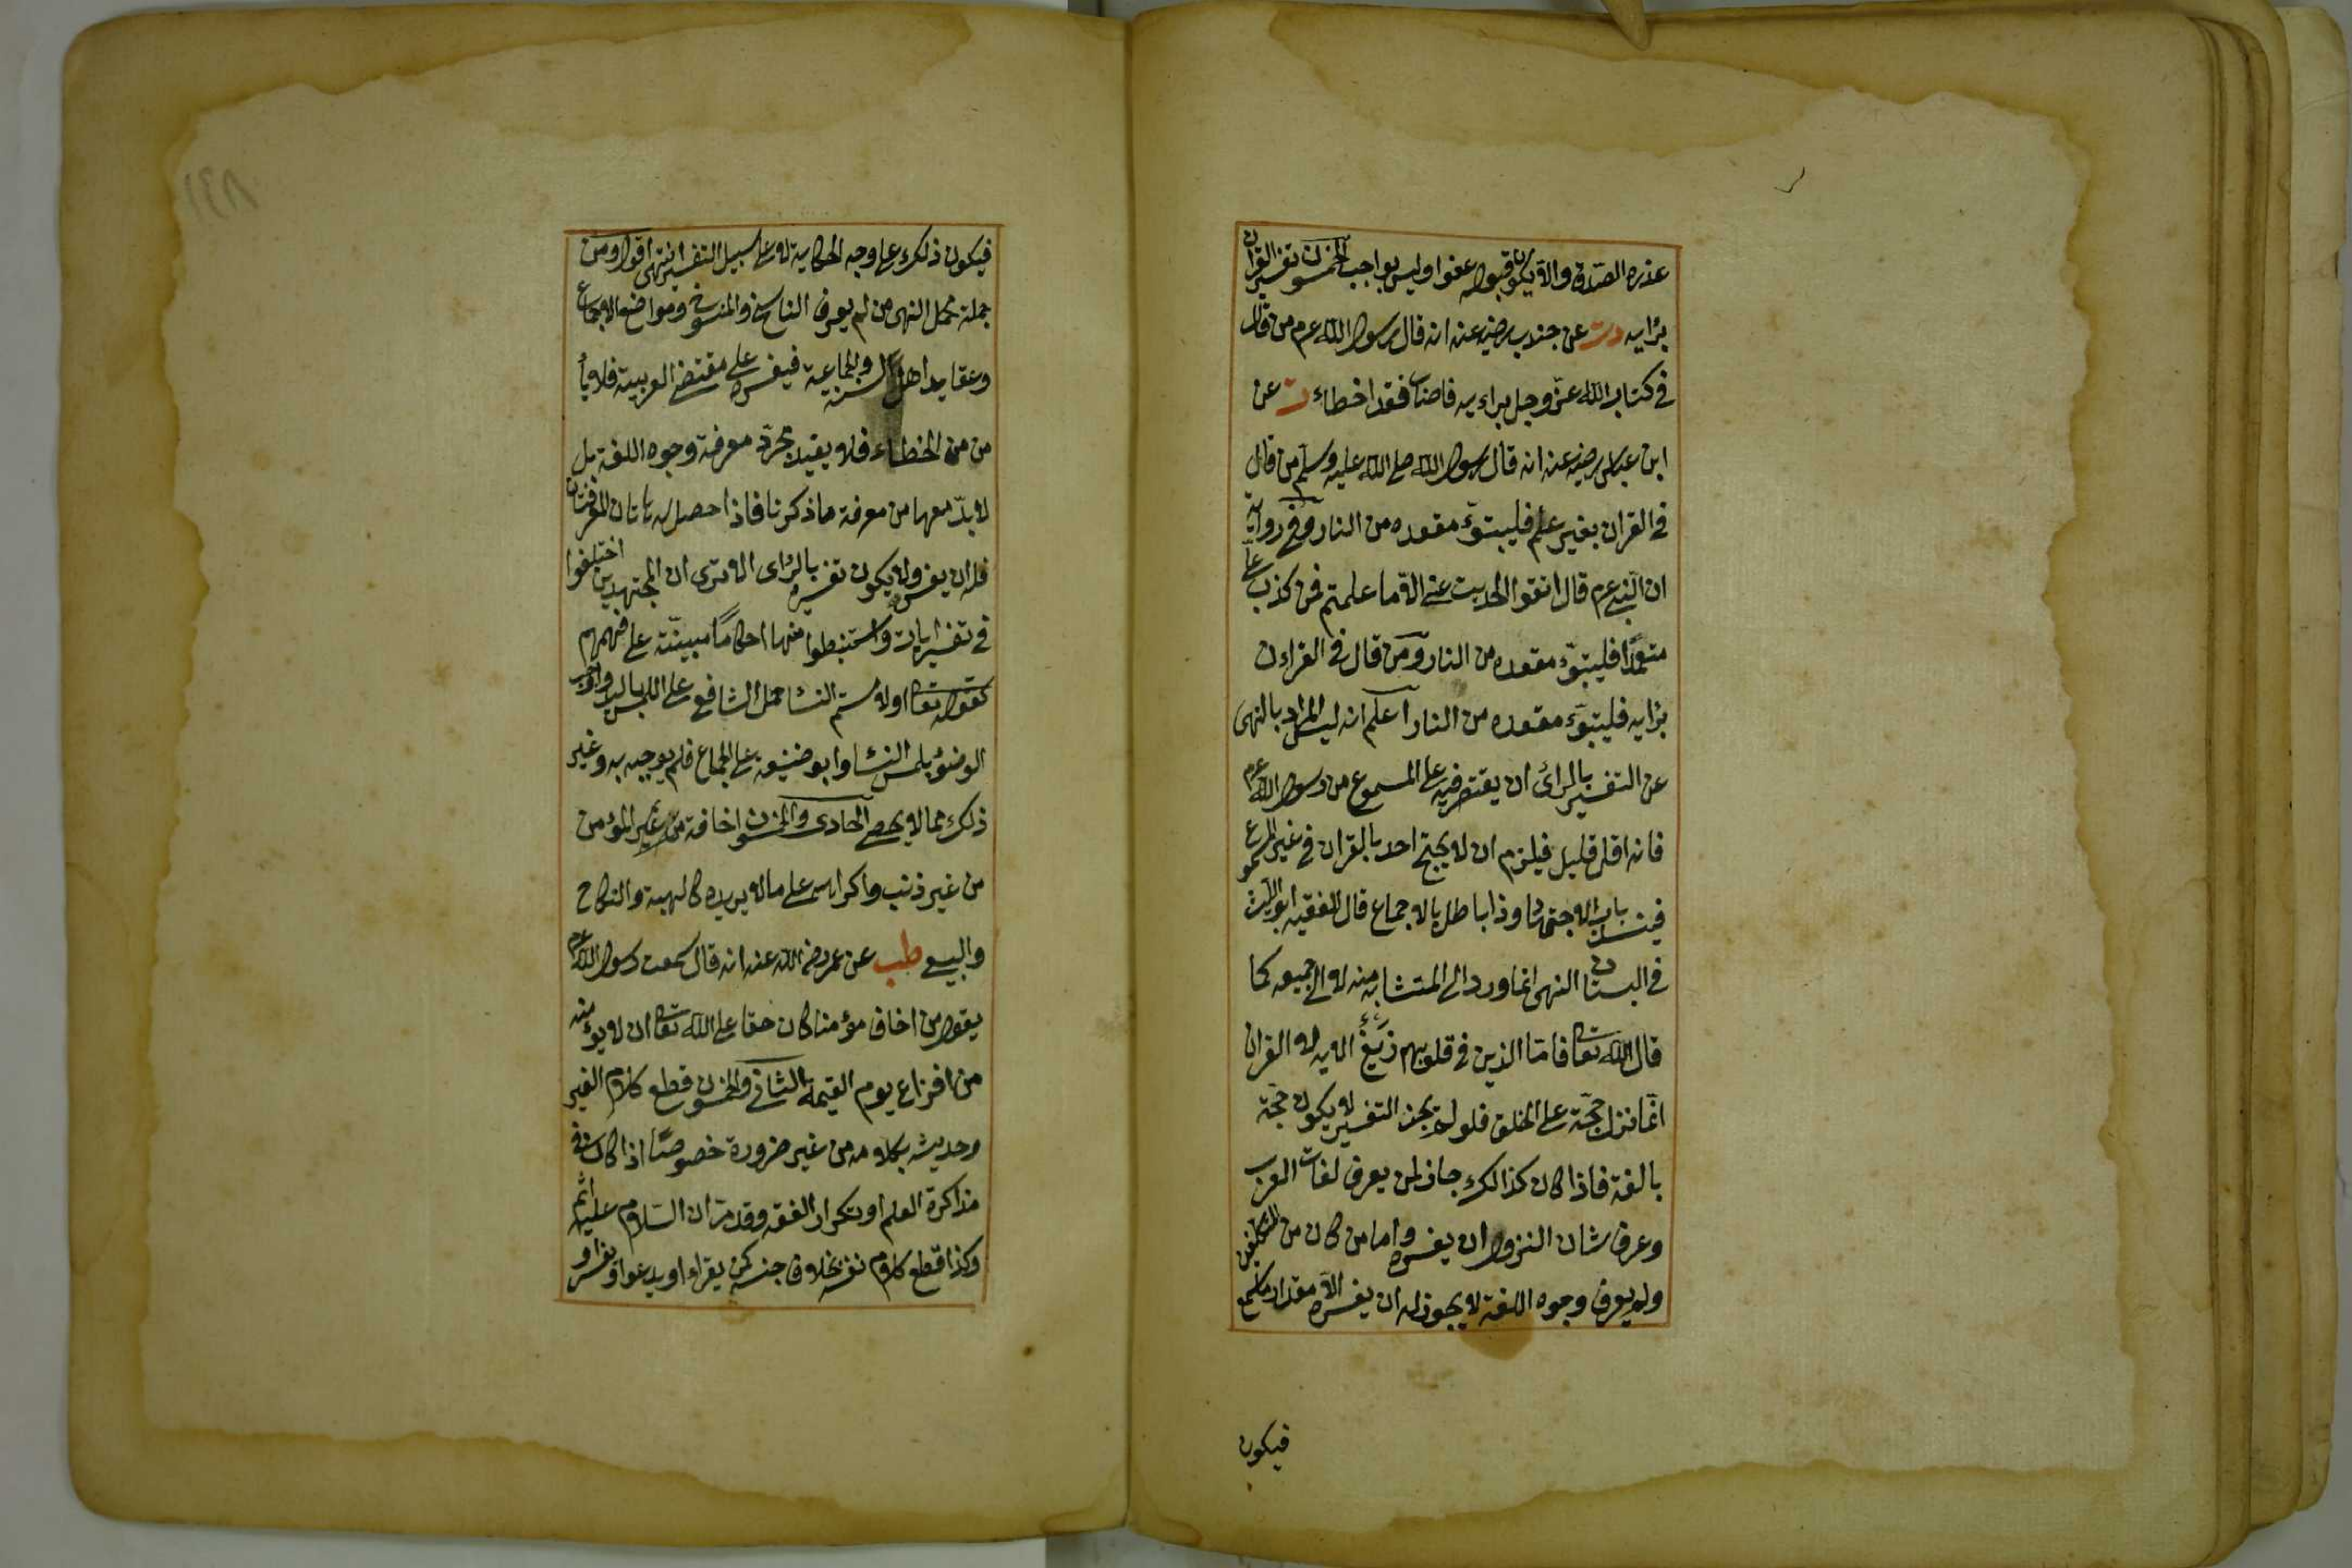 عذره الصدق والا يكون قبوله عفوا وليس بواجب الخمسون تفسير القران
برايه دت عن جندب رضيه عنه انه قال رسول الله عرم من قال
في كتاب الله عز وجل براءيه فاصاب فقد اخطاء ت عن
ابن عباس رضيه عنه انه قال رسول الله صلى الله عليه وسلم من قال
في القران بغير علم فليبتوء مقعده من النار وفي رواية
ان النبي عرم قال اتقوا الحديث عني الا ما علمتم فمن كذب على
متعمدا فليتبوء مقعده من النار ومن قال في القراءن
برايه فليتبوء مقعده من النار اعلم انه ليس المراد بالنهى
عن التفسير بالرائ ان يقتصر فيه على المسموع من رسول الله عرم
فانه اقل قليل فيلزم ان لا يحتج احد بالقران في غير المسموع
فينسد باب الاجتهاد وذا باطل بالاجماع قال الفقيه ابو الليث
في البستان النهى انما ورد الى المتشابه منه لا الى جميعه كما
قال الله تعالى فاما الذين في قلوبهم زيغ الايه لان القران
انما نزل حجة على الخلق فلو لم يجز التفسير لا يكون حجة
بالغة فاذا كان كذالك جاز لمن يعرف لغات العرب
وعرف شان النزول ان يفسره واما من كان من المتكلفين
ولم يعرف وجوه اللغة لا يجوز له ان يفسره الا مقدار ما سمع
فيكون
١٤٨
فيكون ذلك على وجه الحكاية لا على سبيل التفسير انتهى اقول ومن
جملة محمل النهى من لم يعرف الناسخ والمنسوخ ومواضع الاجماع
وعقايد اهل السنة والجماعة فيفسره على مقتضى العربية فلا يأ
من من الخطاء فلا يفيد بمجرد معرفة وجوه اللغة بل
لا بد معها من معرفة ما ذكرنا فاذا حصل له تاتان المعرفتان
فله ان يفسره ولا يكون تفسيره بالراى الا ترى ان المجتهدين اختلفوا
في تفسير ايات واستنبطوا منها احكاما مبينة على فهمهم
كقوله تعالى او لامستم النسا حمل الشافعي على اللمس باليد واوجب
الوضوء بلمس النسا وابو حنيفة على الجماع فلم يوجبه به وغير
ذلك مما لا يحصى الحادى والخمسون اخافة من غير المؤمن
من غير ذنب واكراهه على ما لا يريده كالهبة والنكاح
والبيع طب عن عمر رضى الله عنه انه قال سمعت رسول الله عرم
يقول من اخاف مؤمنا كان حقا على الله تعالى ان لا يؤمنه
من افزاع يوم القيمة الثانى والخمسون قطع كلام الغير
وحديثه بكلامه من غير ضرورة خصوصا اذا كان في
مذاكرة العلم او تكرار الفقه وقد مر ان السلام عليه اثم
وكذا قطع كلام نفسه بخلاف جنسه كمن يقراء او يدعوا او يفسر او